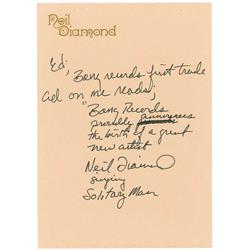 Neil
Diamond
Ed,
Bang records first trade
ad on me reads;
"Bang Records
proudly announces
the birth of a great
new artist
Neil Diamond
singing
Solitary Man